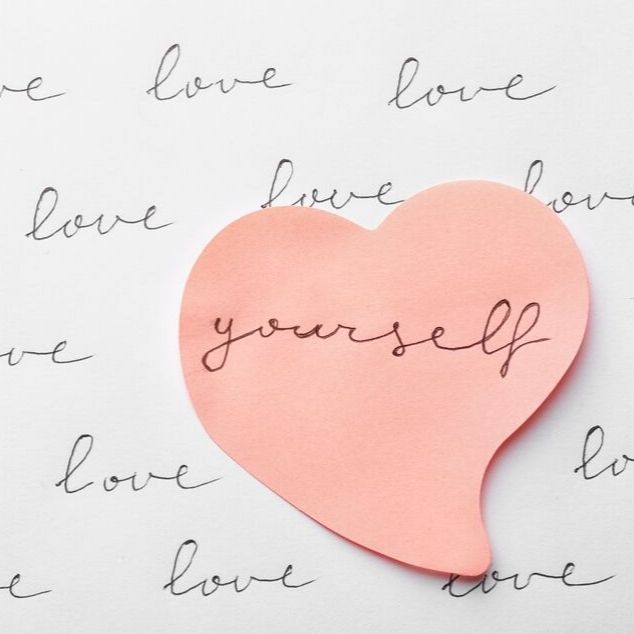 ve love love
love love love
yourself
ve
love lo
e love love